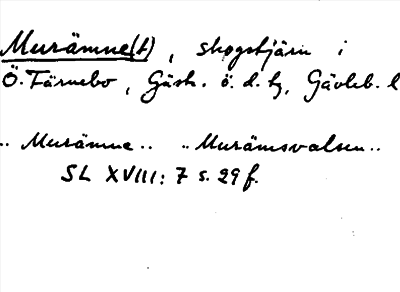 Murämne(t), skogstjärn i
Ö. Färnebo, Gästr. ö. d. tg, Gävleb. l
.. Murämne.. .. Murämsvalsen..
SL XVIII: 7 s. 29 f.